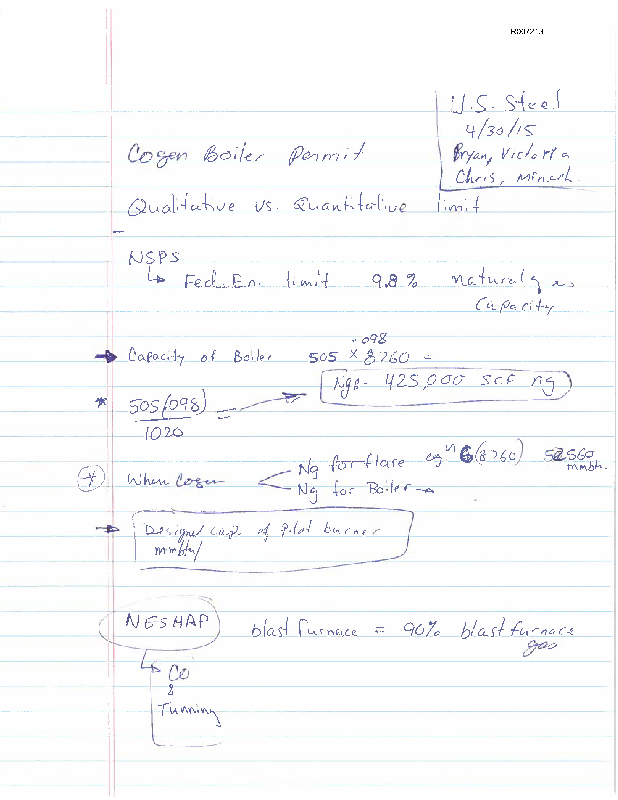 R007213
U.S. Steel
4/30/15
Bryan, Victoria
Chris, Minesh
Cogen Boiler Permit
Qualitative vs. Quantitative limit
NSPS
↳ Fed. En. limit 9.8% natural gas
Capacity
.098
→ Capacity of Boiler 505 x 8760 =
Ng = 425,000 scf ng
* 505(098) =
1020
* When Cogen
Ng for flare 6(8760) 52560
mmbtu
Ng for Boiler →
→ Designed cap. of Pilot burner
mmbtu/
NESHAP blast furnace = 90% blast furnace
gas
↳ CO
&
Tunning